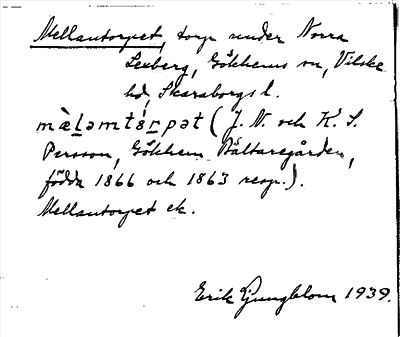 Mellantorpet, torp under Norra
Lexberg, Gökhems sn, Vilske
hd, Skaraborgs l.
mæ̀ləmtɵ́rpət (J. N. och K. S.
Persson, Gökhem Bältaregården,
födda 1866 och 1863 resp.).
Mellantorpet ek.
Erik Ljungblom 1939.